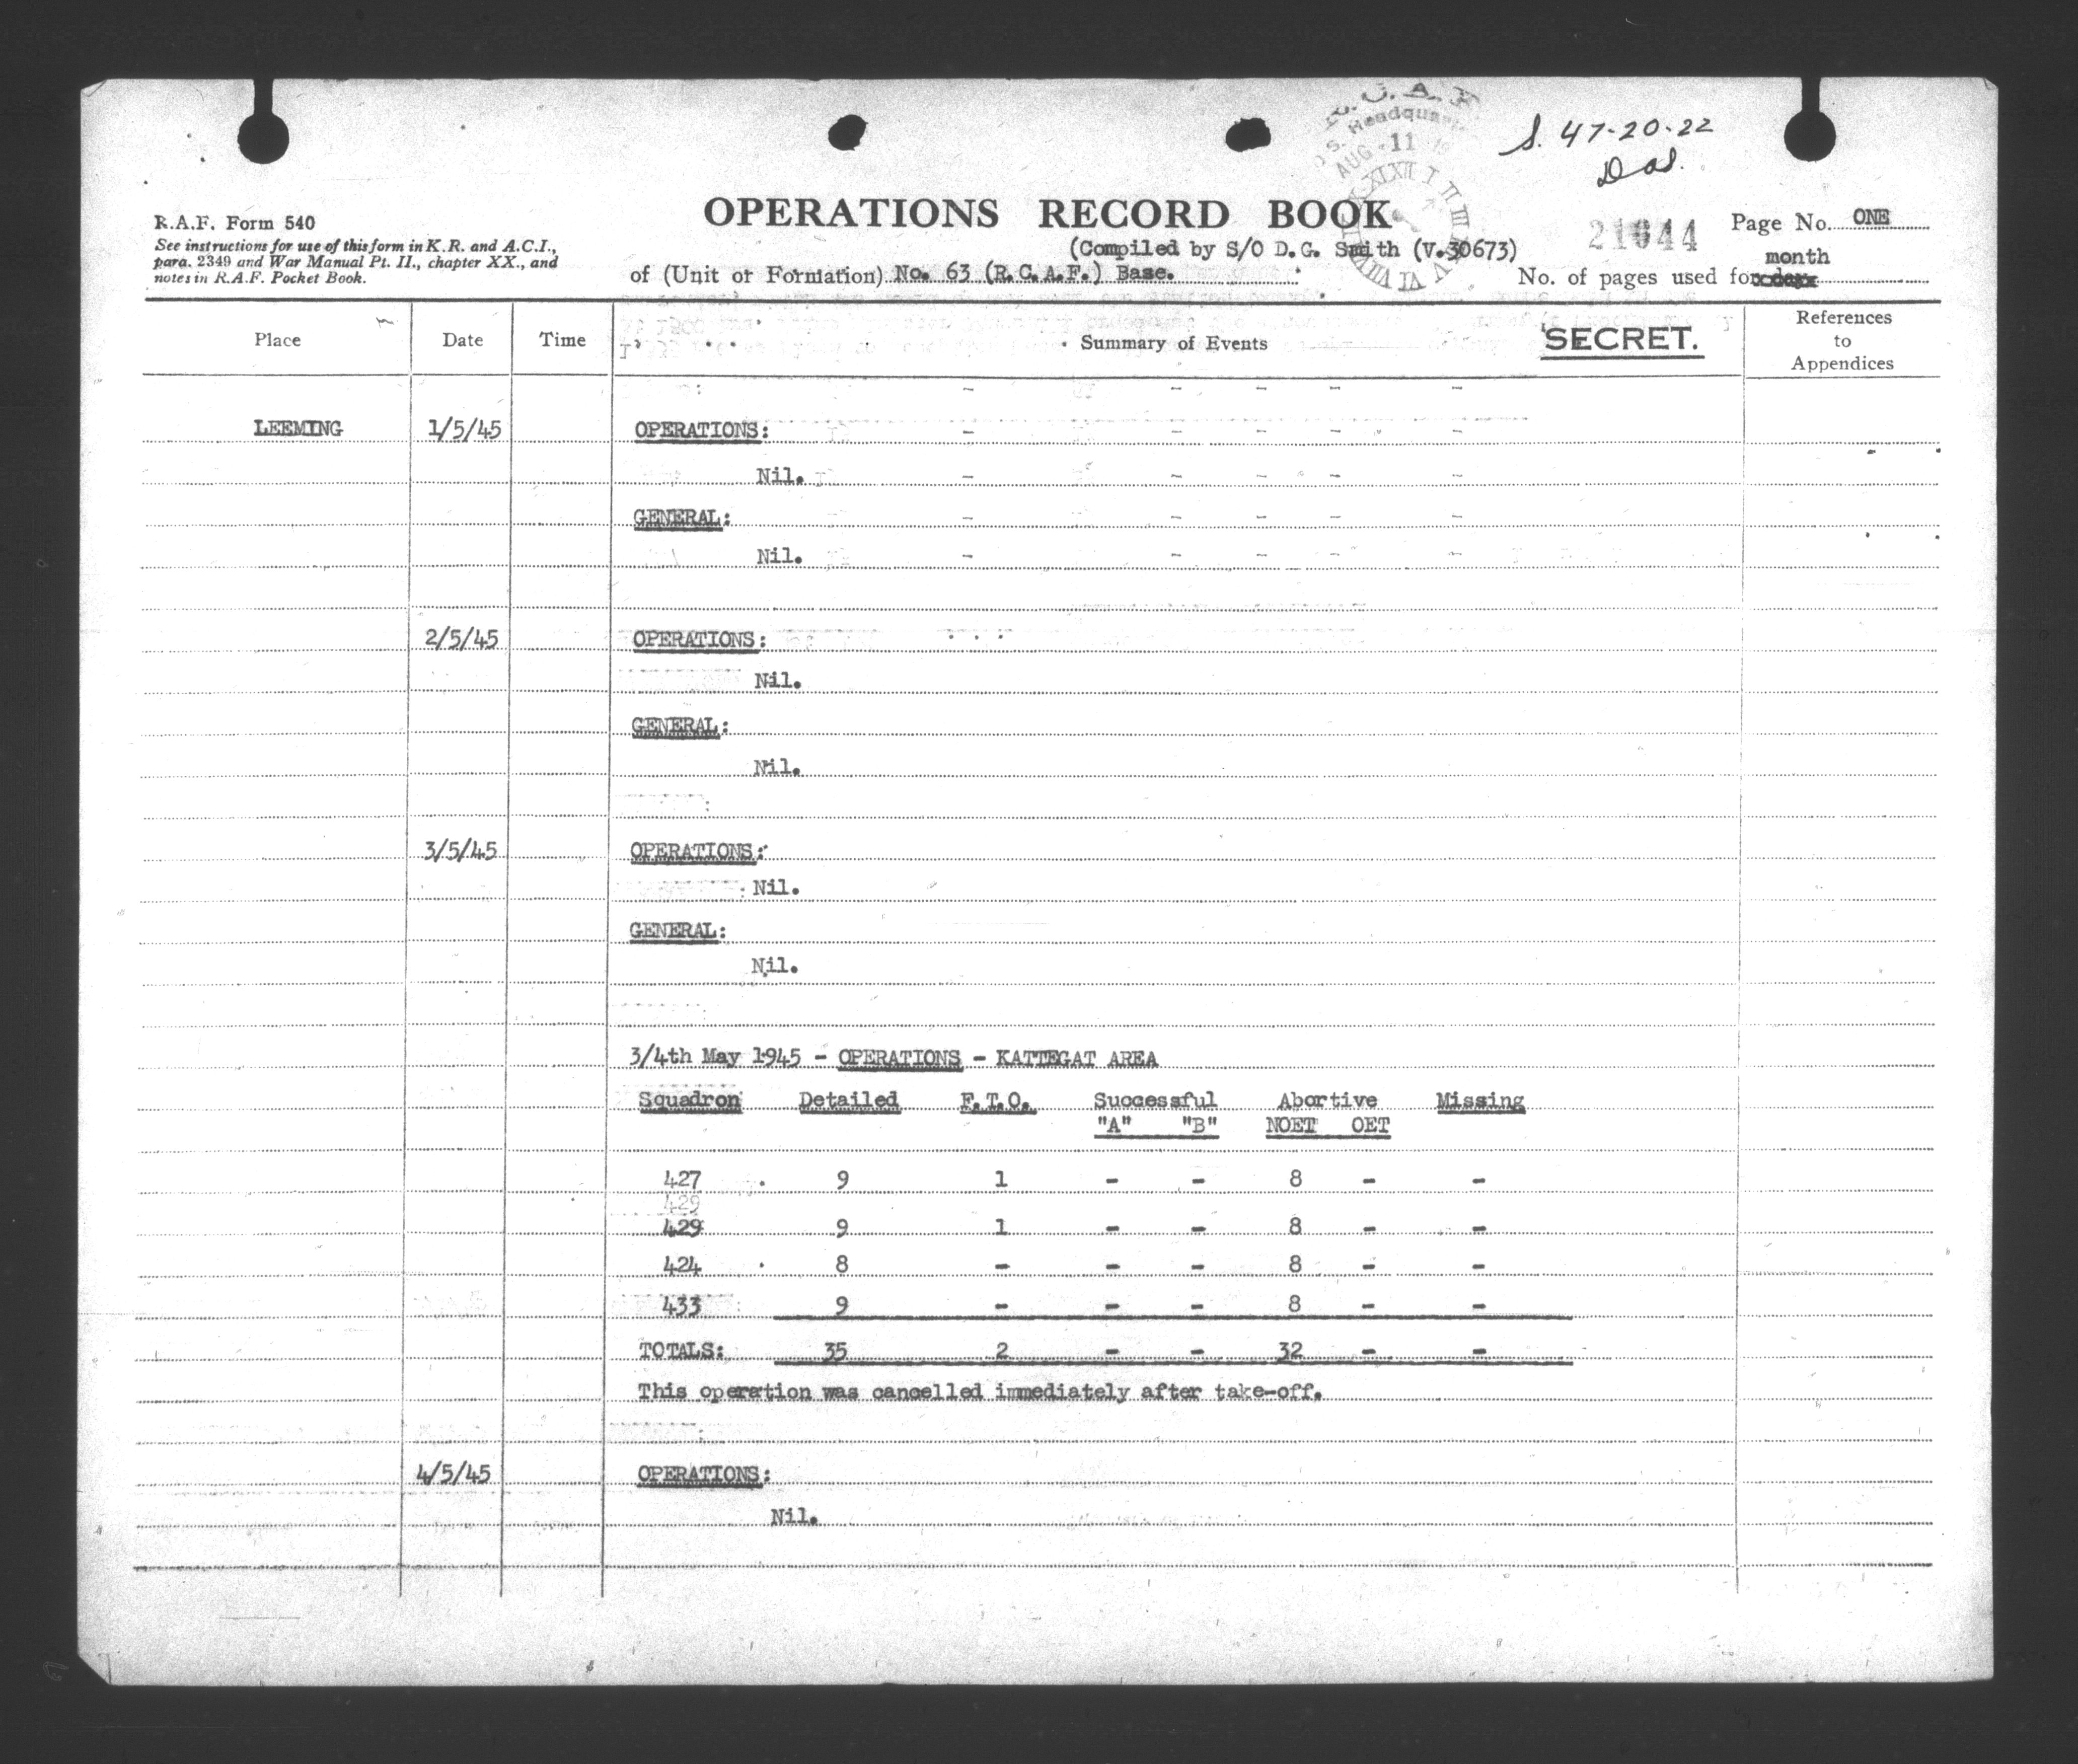 R.C.A.F.
Headquarters
AUG 11
S. 47-20-22
R.A.F. Form 540
See instructions for use of this form in K.R. and A.C.I.,
para. 2349 and War Manual Pt. II., chapter XX., and
notes in R.A.F. Pocket Book.
OPERATIONS RECORD BOOK
(Compiled by S/O D.G. Smith (V.30673)
of (Unit or Formation) No. 63 (R.C.A.F.) Base.
Page No. ONE
month
No. of pages used for day
Place Date Time Summary of Events SECRET. References to Appendices
LEEMING 1/5/45 OPERATIONS:
Nil.
GENERAL:
Nil.
2/5/45 OPERATIONS:
Nil.
GENERAL:
Nil.
3/5/45 OPERATIONS:
Nil.
GENERAL:
Nil.
3/4th May 1945 - OPERATIONS - KATTEGAT AREA
Squadron Detailed F.T.O. Successful Abortive Missing
"A" "B" NOET OET
427 9 1 - - 8 - -
429
429 9 1 - - 8 - -
424 8 - - - 8 - -
433 9 - - - 8 - -
TOTALS: 35 2 - - 32 - -
This operation was cancelled immediately after take-off.
4/5/45 OPERATIONS:
Nil.